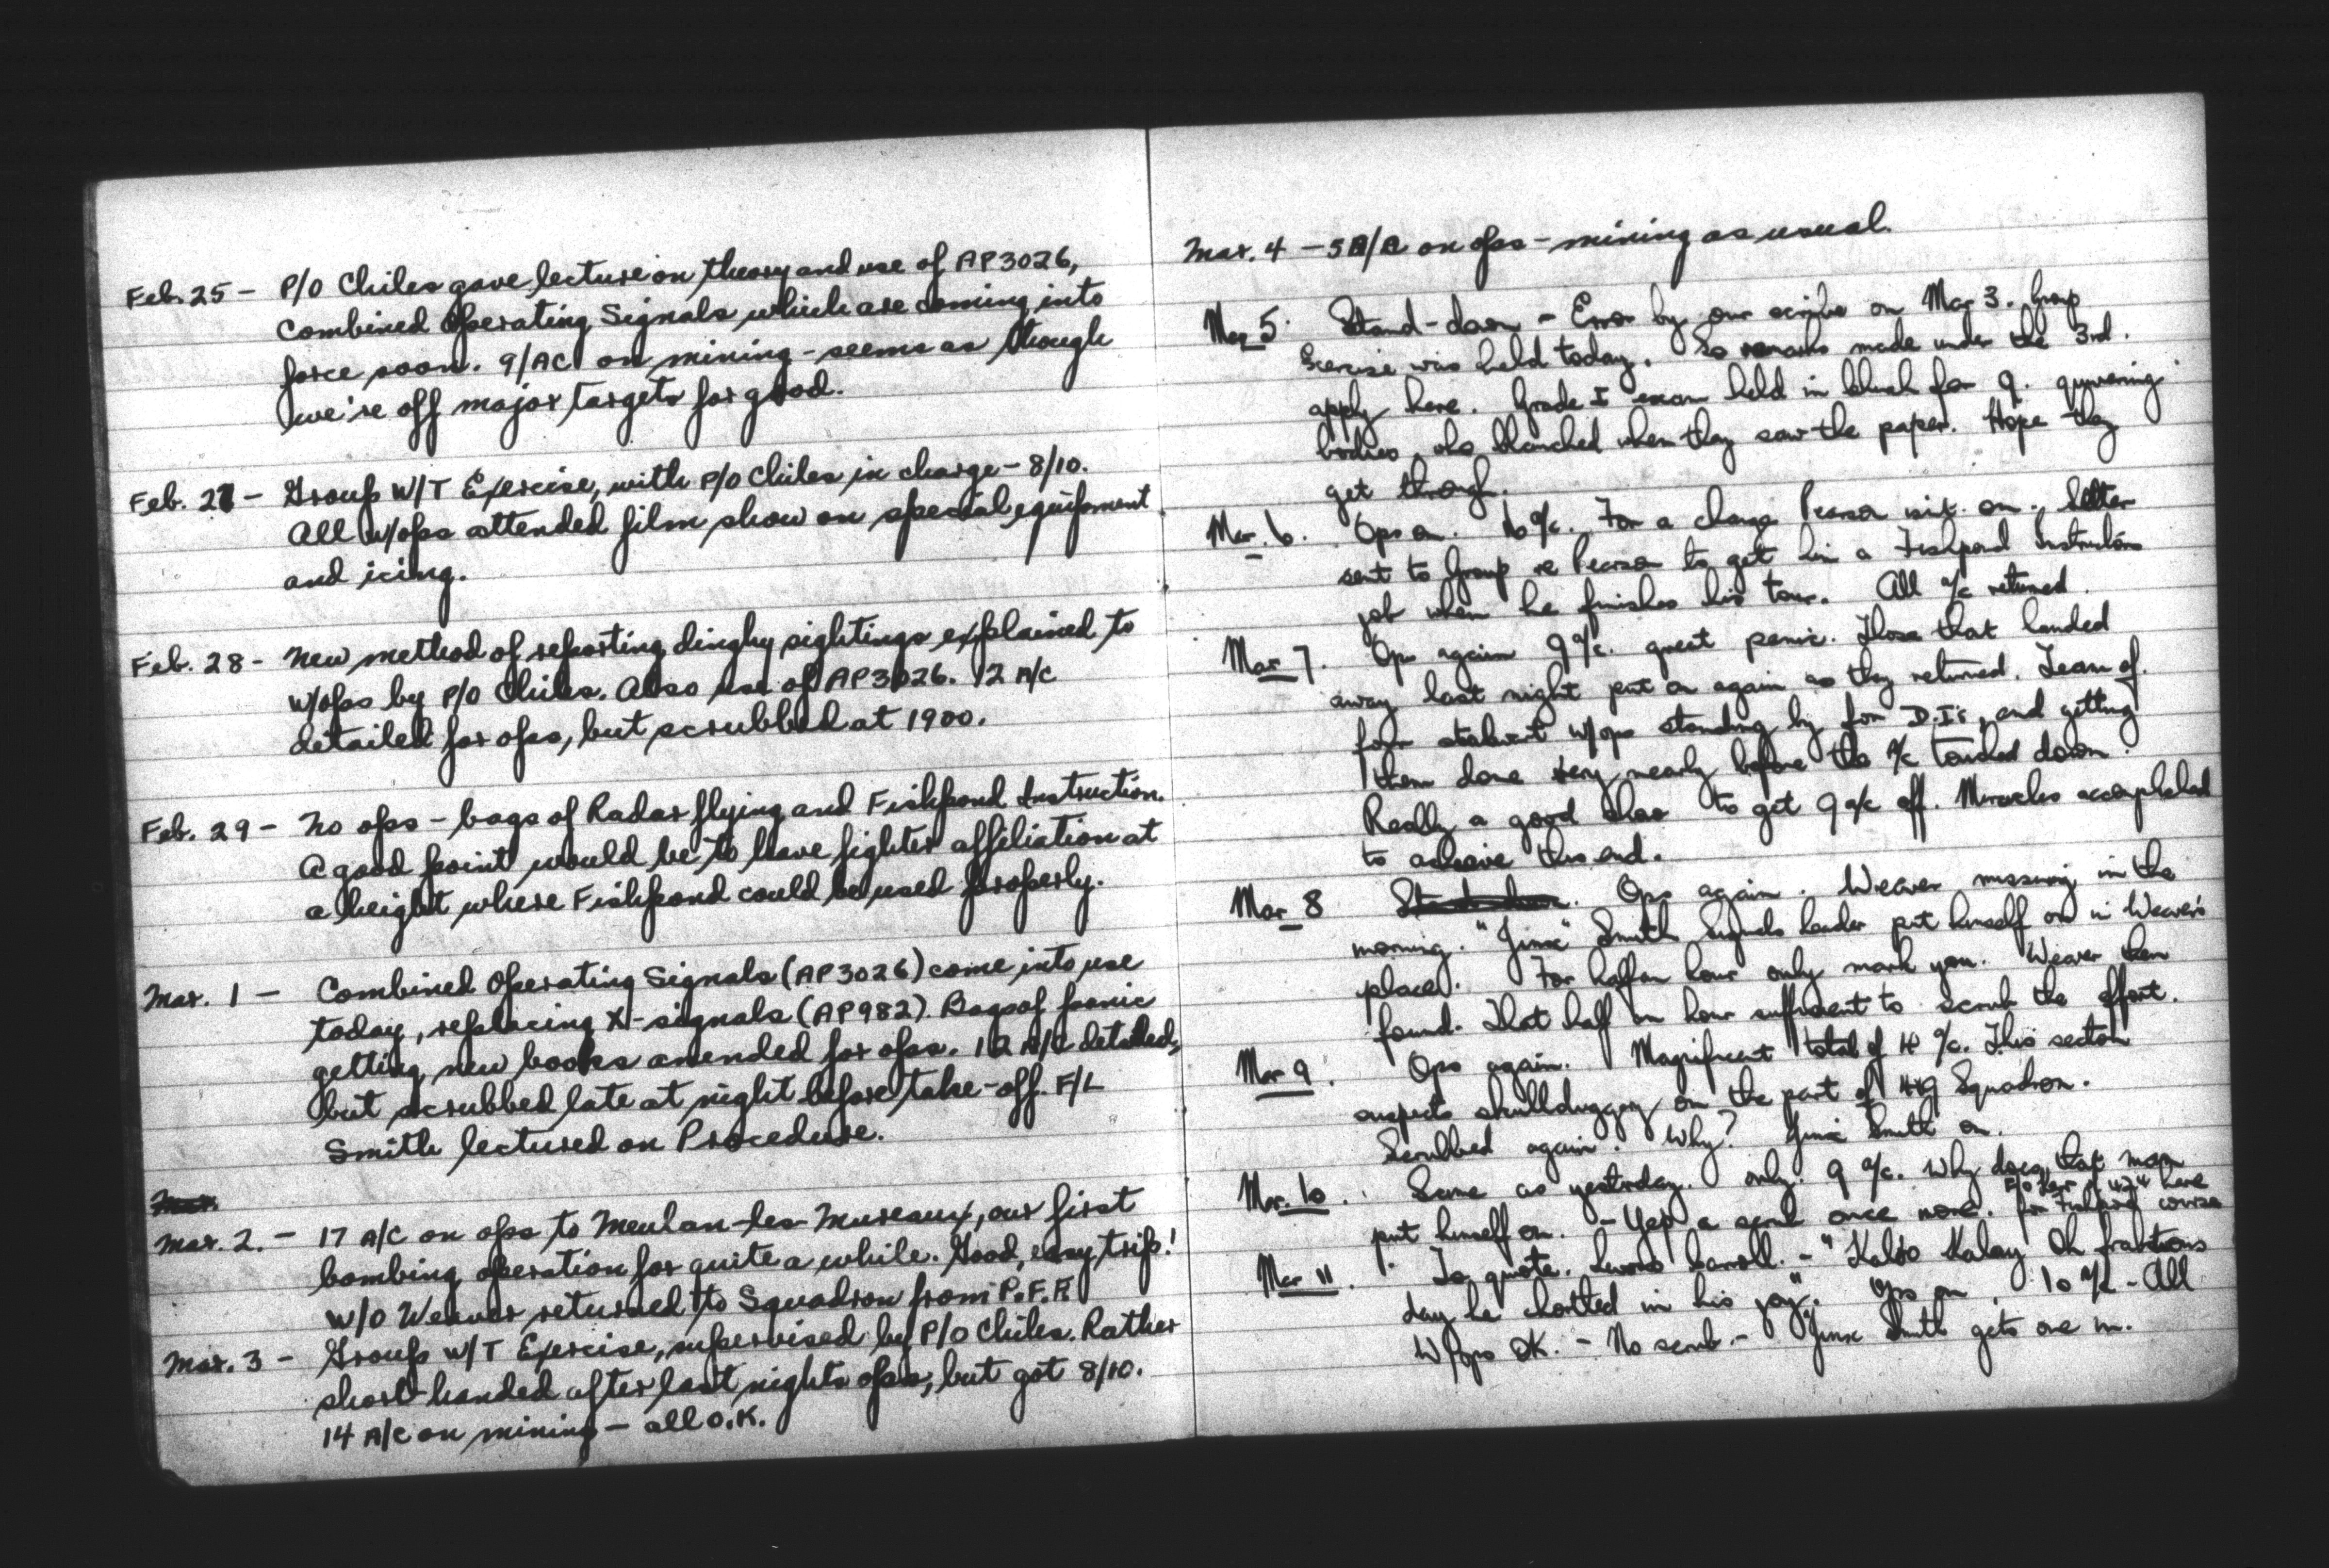 Feb. 25 - P/O Chiles gave lecture on theory and use of AP3026,
Combined Operating Signals which are coming into
force soon. 9/AC on mining - seems as though
we're off major targets for good.
Feb. 27 - Group W/T Exercise, with P/O Chiles in charge - 8/10.
All W/ops attended film show on special equipment
and icing.
Feb. 28 - New method of reporting dinghy sightings explained to
W/ops by P/O Chiles. Also use of AP3026. 12 A/C
detailed for ops, but scrubbed at 1900.
Feb. 29 - No ops - bags of Radar flying and Fishpond Instruction.
A good point would be to have fighter affiliation at
a height where Fishpond could be used properly.
Mar. 1 - Combined Operating Signals (AP3026) come into use
today, replacing X-signals (AP982). Bags of panic
getting new books amended for ops. 12 A/C detailed,
but scrubbed late at night before take-off. F/L
Smith lectured on Procedure.
Mar.
Mar. 2. - 17 A/C on ops to Meulan-les-Mureaux, our first
bombing operation for quite a while. Good, easy trip!
W/O Weaver returned to Squadron from P.F.F.
Mar. 3 - Group W/T Exercise, supervised by P/O Chiles. Rather
short-handed after last nights ops, but got 8/10.
14 A/C on mining - all O.K.
Mar. 4 - 5 A/C on ops - mining as usual.
Mar 5. Stand-down - Error by our scribe on Mar 3. Group
Exercise was held today. So remarks made under the 3rd.
apply here. Grade I exam held in for 9. quivering
bodies who blanched when they saw the paper. Hope they
get through.
Mar. 6. Ops on. 10 a/c. For a change Pearson isn't on. Letter
sent to Group re Pearson to get him a Fishpond Instructors
job when he finishes his tour. All a/c returned.
Mar 7. Ops again 9 a/c. great panic. Those that landed
away last night put on again as they returned. Team of
four stalwart W/ops standing by for D.I's, and getting
them done very nearly before the A/c touched down.
Really a good show to get 9 a/c off. Miracles accomplished
to achieve this end.
Mar 8 Stand down. Ops again. Weaver missing in the
morning. "Jinx" Smith Signals leader put himself on in Weaver's
place. For half an hour only mark you. Weaver then
found. That half an hour sufficient to scrub the effort.
Mar 9. Ops again. Magnificent total of a/c. This section
suspects skullduggery on the part of 419 Squadron.
Scrubbed again. Why? Jinx Smith on.
Mar. 10. Same as yesterday. only 9 a/c. Why does that man
put himself on. - Yep a scrub once more. F/O of 424 here for Fishpond course
Mar 11. To quote. Lewis Carroll. - "Kaloo Kalay Oh frabtious
day he chortled in his joy". Ops on, 10 a/c - All
W/ops OK. - No scrub. - "Jinx Smith gets one in.